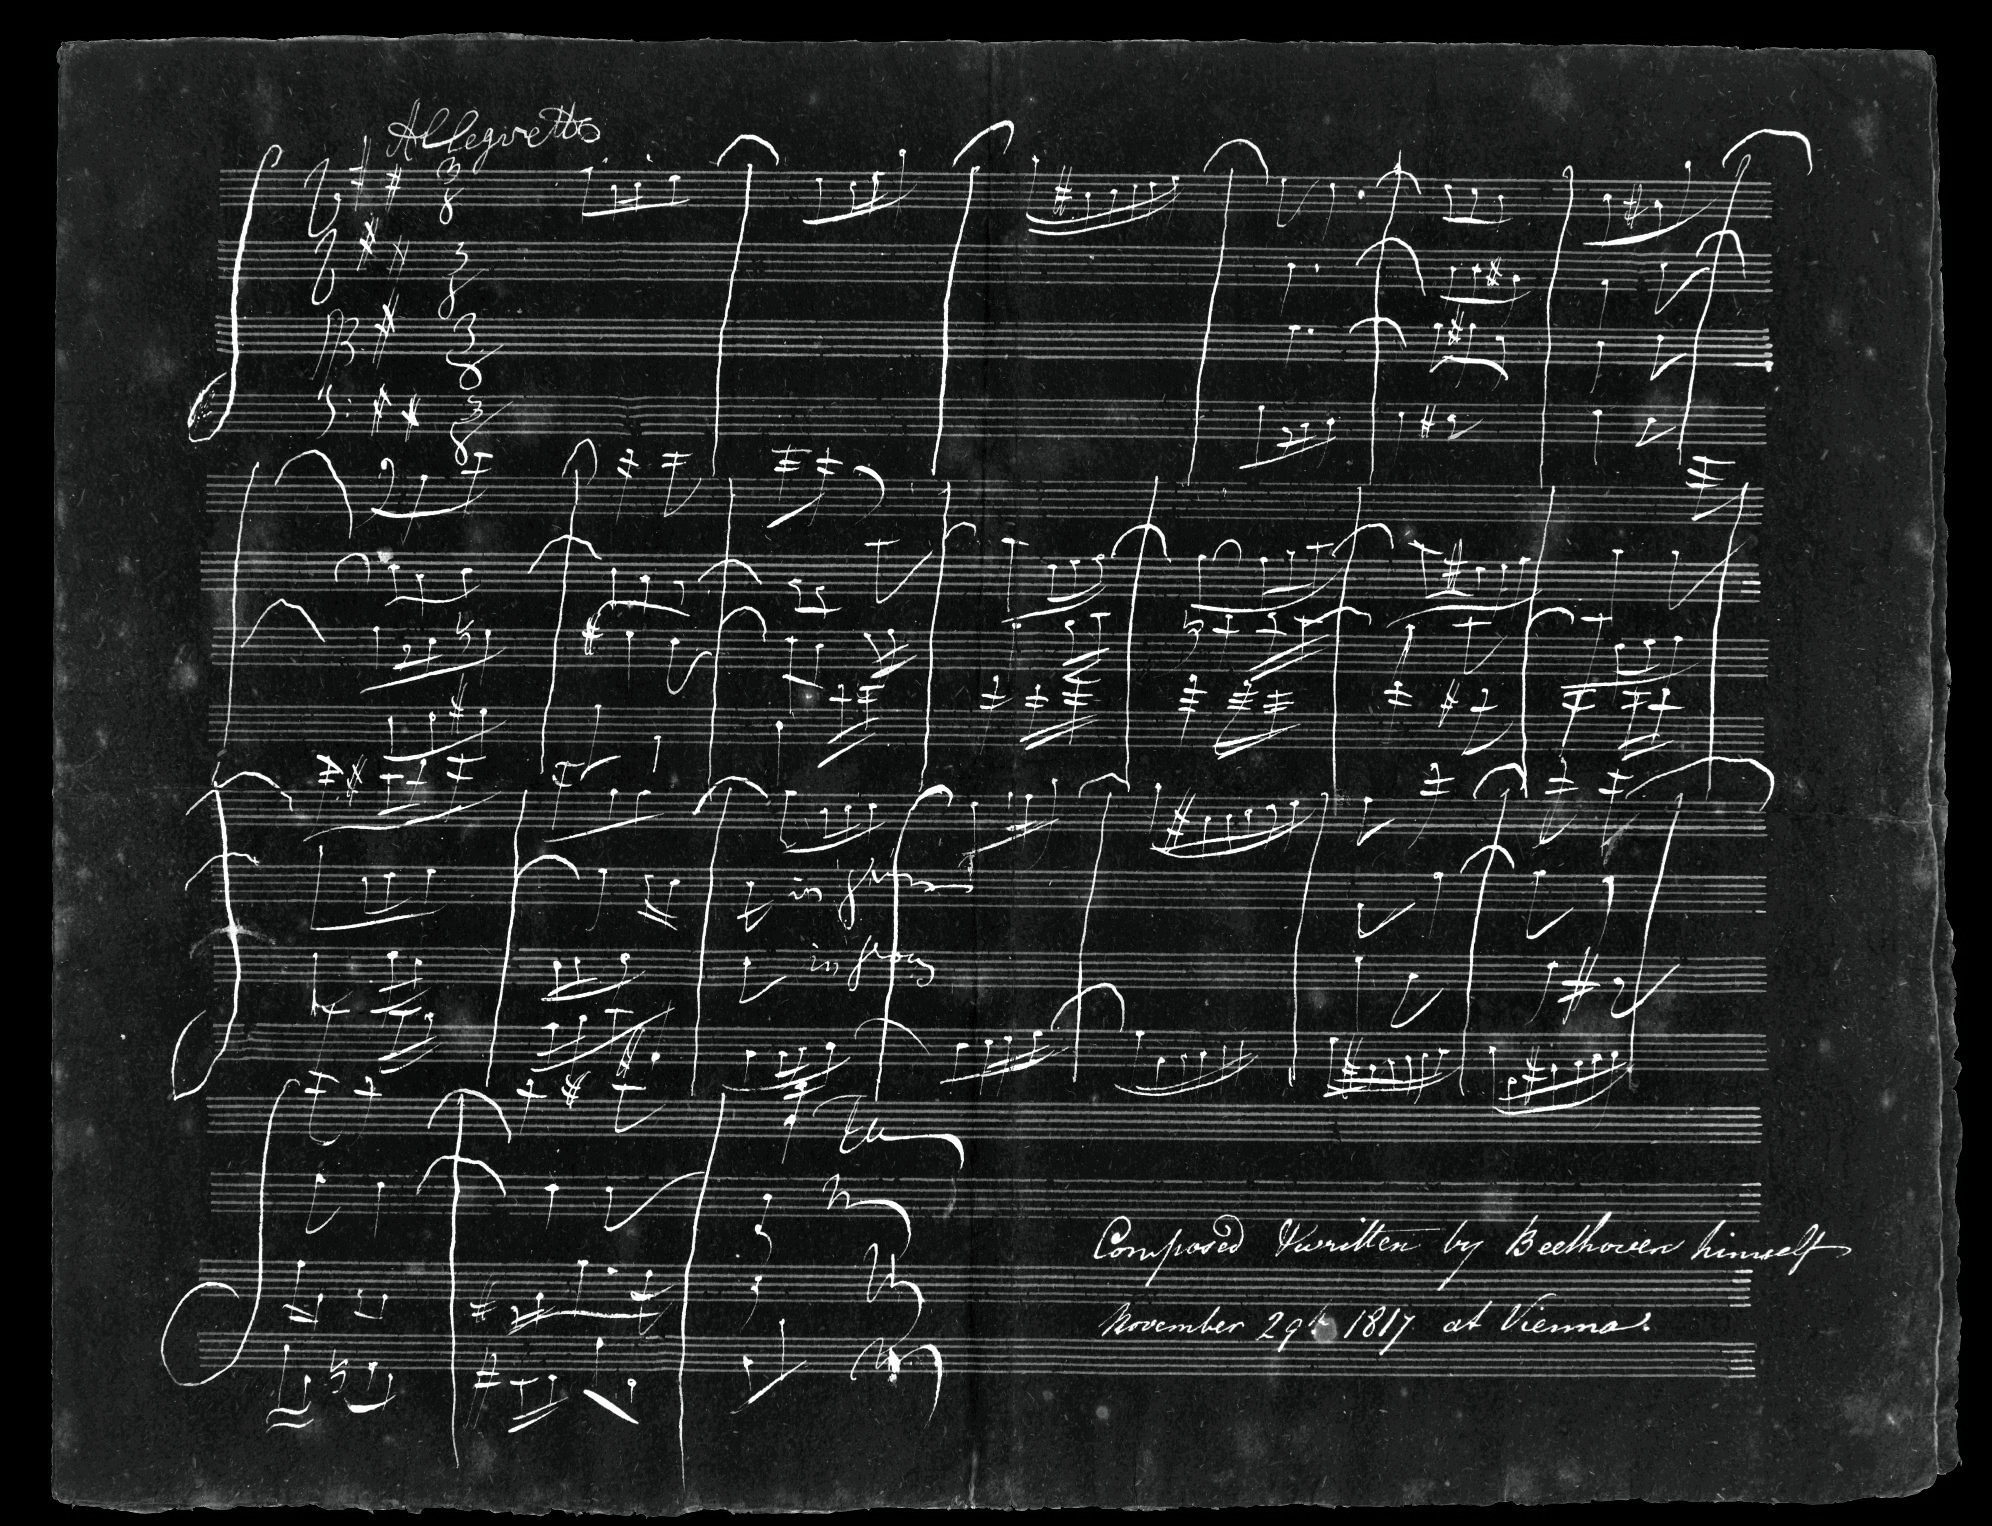 Allegretto
3 8
3 8
3 8
3 8
Composed & written by Beethoven himself
November 29th 1817 at Vienna.